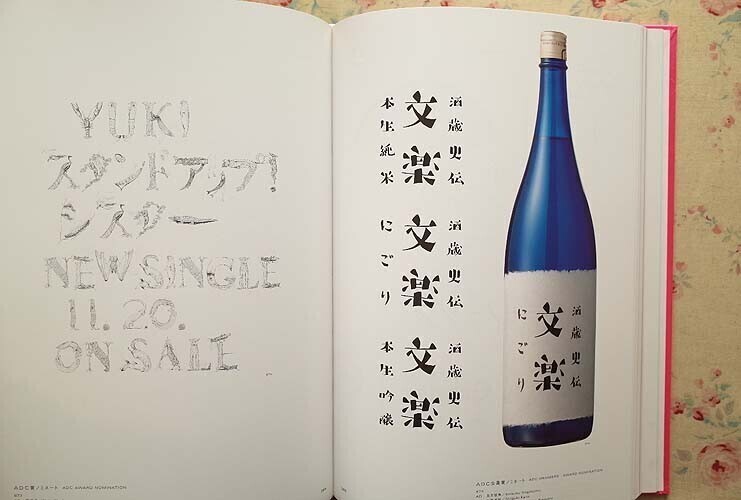 YUKI
スタンドアップ!
シスター
NEW SINGLE
11.20.
ON SALE
ADC賞ノミネート ADC AWARD NOMINATION
酒蔵史伝
文楽
本生純米
酒蔵史伝
文楽
にごり
酒蔵史伝
文楽
本生吟醸
酒蔵史伝
文楽
にごり